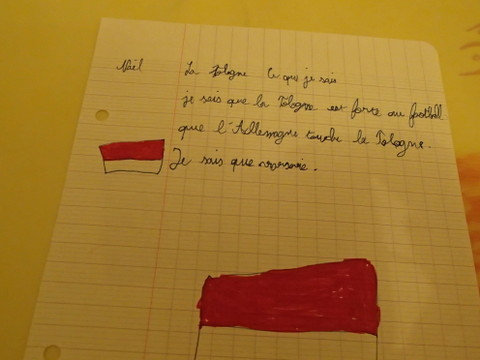 Naïl La Pologne Ce que je sais
je sais que la Pologne est forte au football
que l'Allemagne touche la Pologne.
Je sais que varsovie.